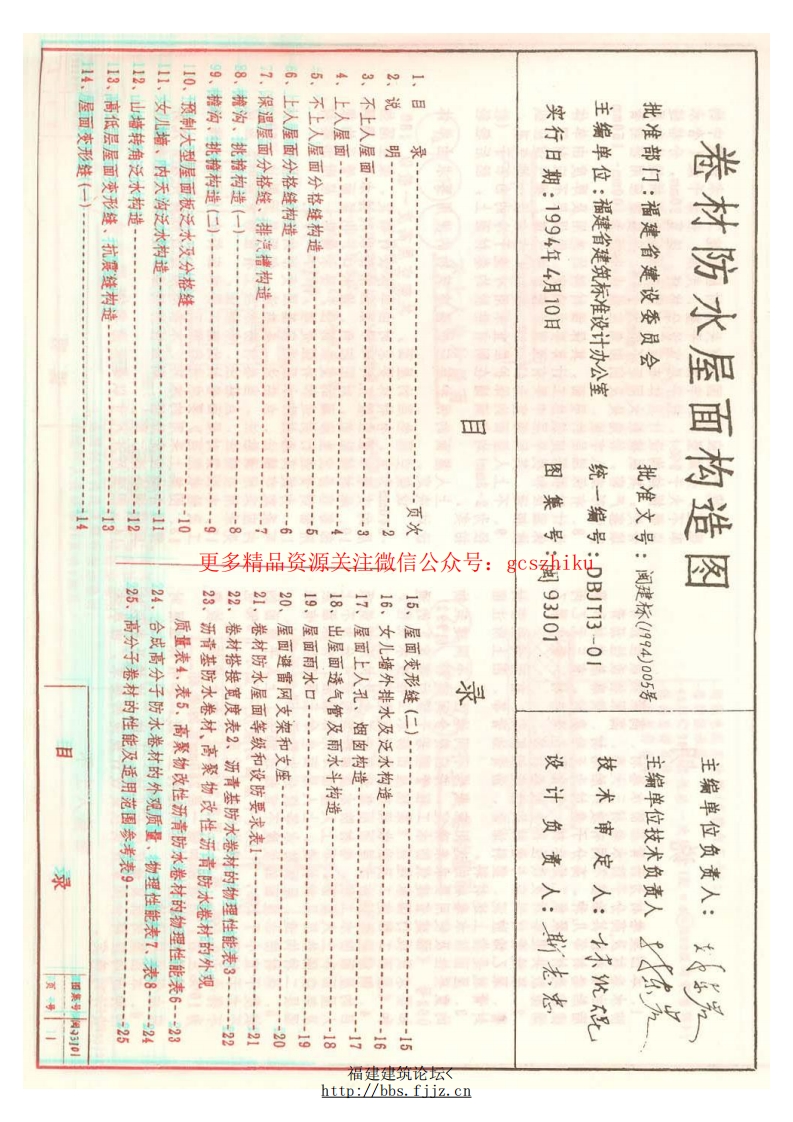 卷材防水屋面构造图
批准部门：福建省建设委员会
批准文号：闽建标(1994)005号
主编单位：福建省建筑标准设计办公室
统一编号：DBJT13-01
实行日期：1994年4月10日
图集号：闽93J01
主编单位负责人：
主编单位技术负责人
技术审定人：
设计负责人：
目 录
页次
1、目 录--------1
2、说 明--------2
3、不上人屋面--------3
4、上人屋面--------4
5、不上人屋面分格缝构造--------5
6、上人屋面分格缝构造--------6
7、保温屋面分格缝、排汽槽构造--------7
8、檐沟、挑檐构造(一)--------8
9、檐沟、挑檐构造(二)--------9
10、预制大型屋面板泛水及分格缝--------10
11、女儿墙、内天沟泛水构造--------11
12、山墙转角泛水构造--------12
13、高低层屋面变形缝、抗震缝构造--------13
14、屋面变形缝(一)--------14
15、屋面变形缝(二)--------15
16、女儿墙外排水及泛水构造--------16
17、屋面上人孔、烟囱构造--------17
18、出屋面透气管及雨水斗构造--------18
19、屋面雨水口--------19
20、屋面避雷网支架和支座--------20
21、卷材防水屋面等级和设防要求表1--------21
22、卷材搭接宽度表2、沥青基防水卷材的物理性能表3--------22
23、沥青基防水卷材、高聚物改性沥青防水卷材的外观
质量表4、表5、高聚物改性沥青防水卷材的物理性能表6--------23
24、合成高分子防水卷材的外观质量、物理性能表7、表8--------24
25、高分子卷材的性能及适用范围参考表9--------25
目 录
图集号 闽93J01
页 号 1
更多精品资源关注微信公众号：gcszhiku
福建建筑论坛<
http://bbs.fjjz.cn